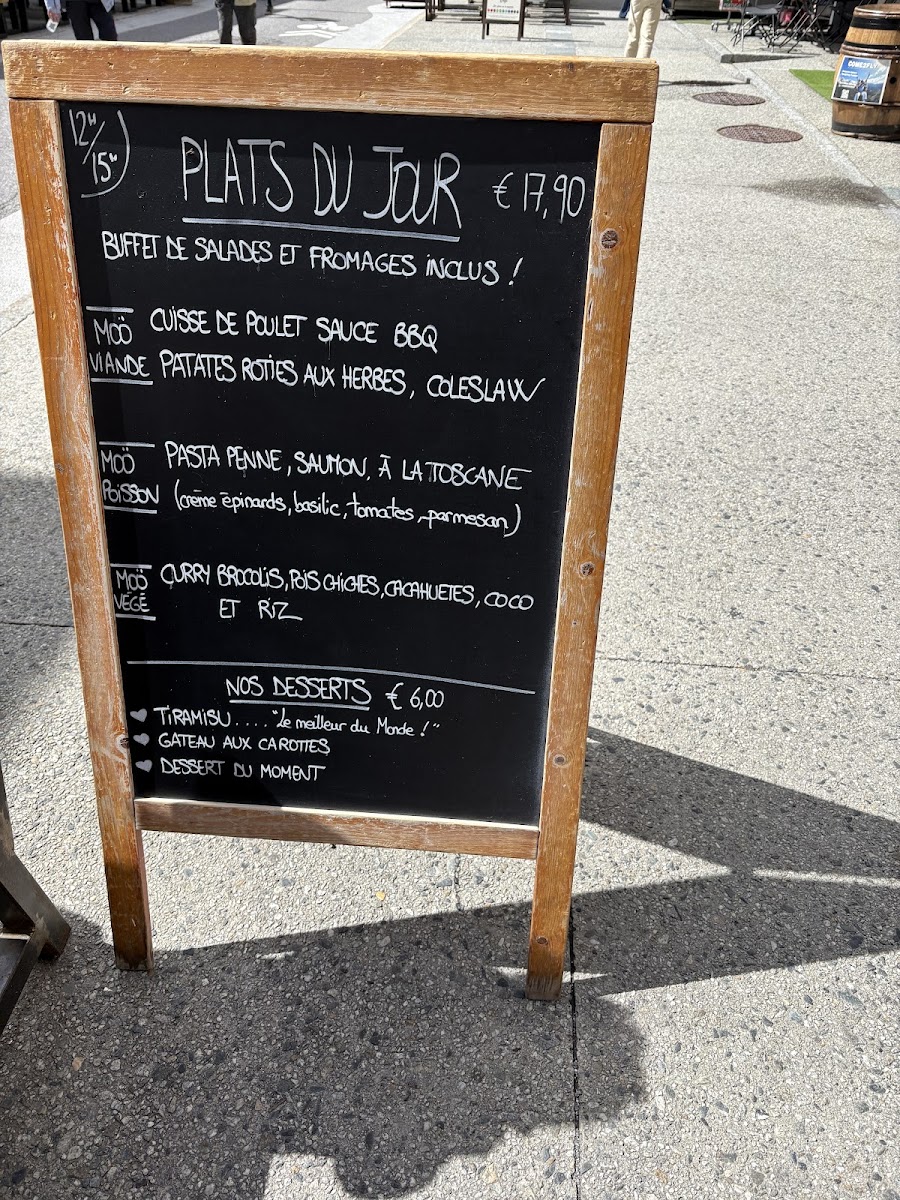 12H/15H
PLATS DU JOUR € 17,90
BUFFET DE SALADES ET FROMAGES INCLUS !
MOÖ VIANDE
CUISSE DE POULET SAUCE BBQ
PATATES ROTIES AUX HERBES, COLESLAW
MOÖ POISSON
PASTA PENNE, SAUMON, À LA TOSCANE
(crème épinards, basilic, tomates, parmesan)
MOÖ VÉGÉ
CURRY BROCOLIS, POIS CHICHES, CACAHUETES, COCO
ET RIZ
NOS DESSERTS € 6,00
TIRAMISU.... "Le meilleur du Monde !"
GATEAU AUX CAROTTES
DESSERT DU MOMENT